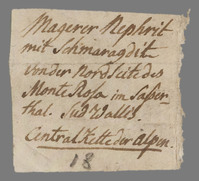 Magerer Nephrit
mit Schmaragdit
von der Nordseite des
Monte Rosa im Sasser-
thal. Süd Wallis.
Central Kette der Alpen.
18